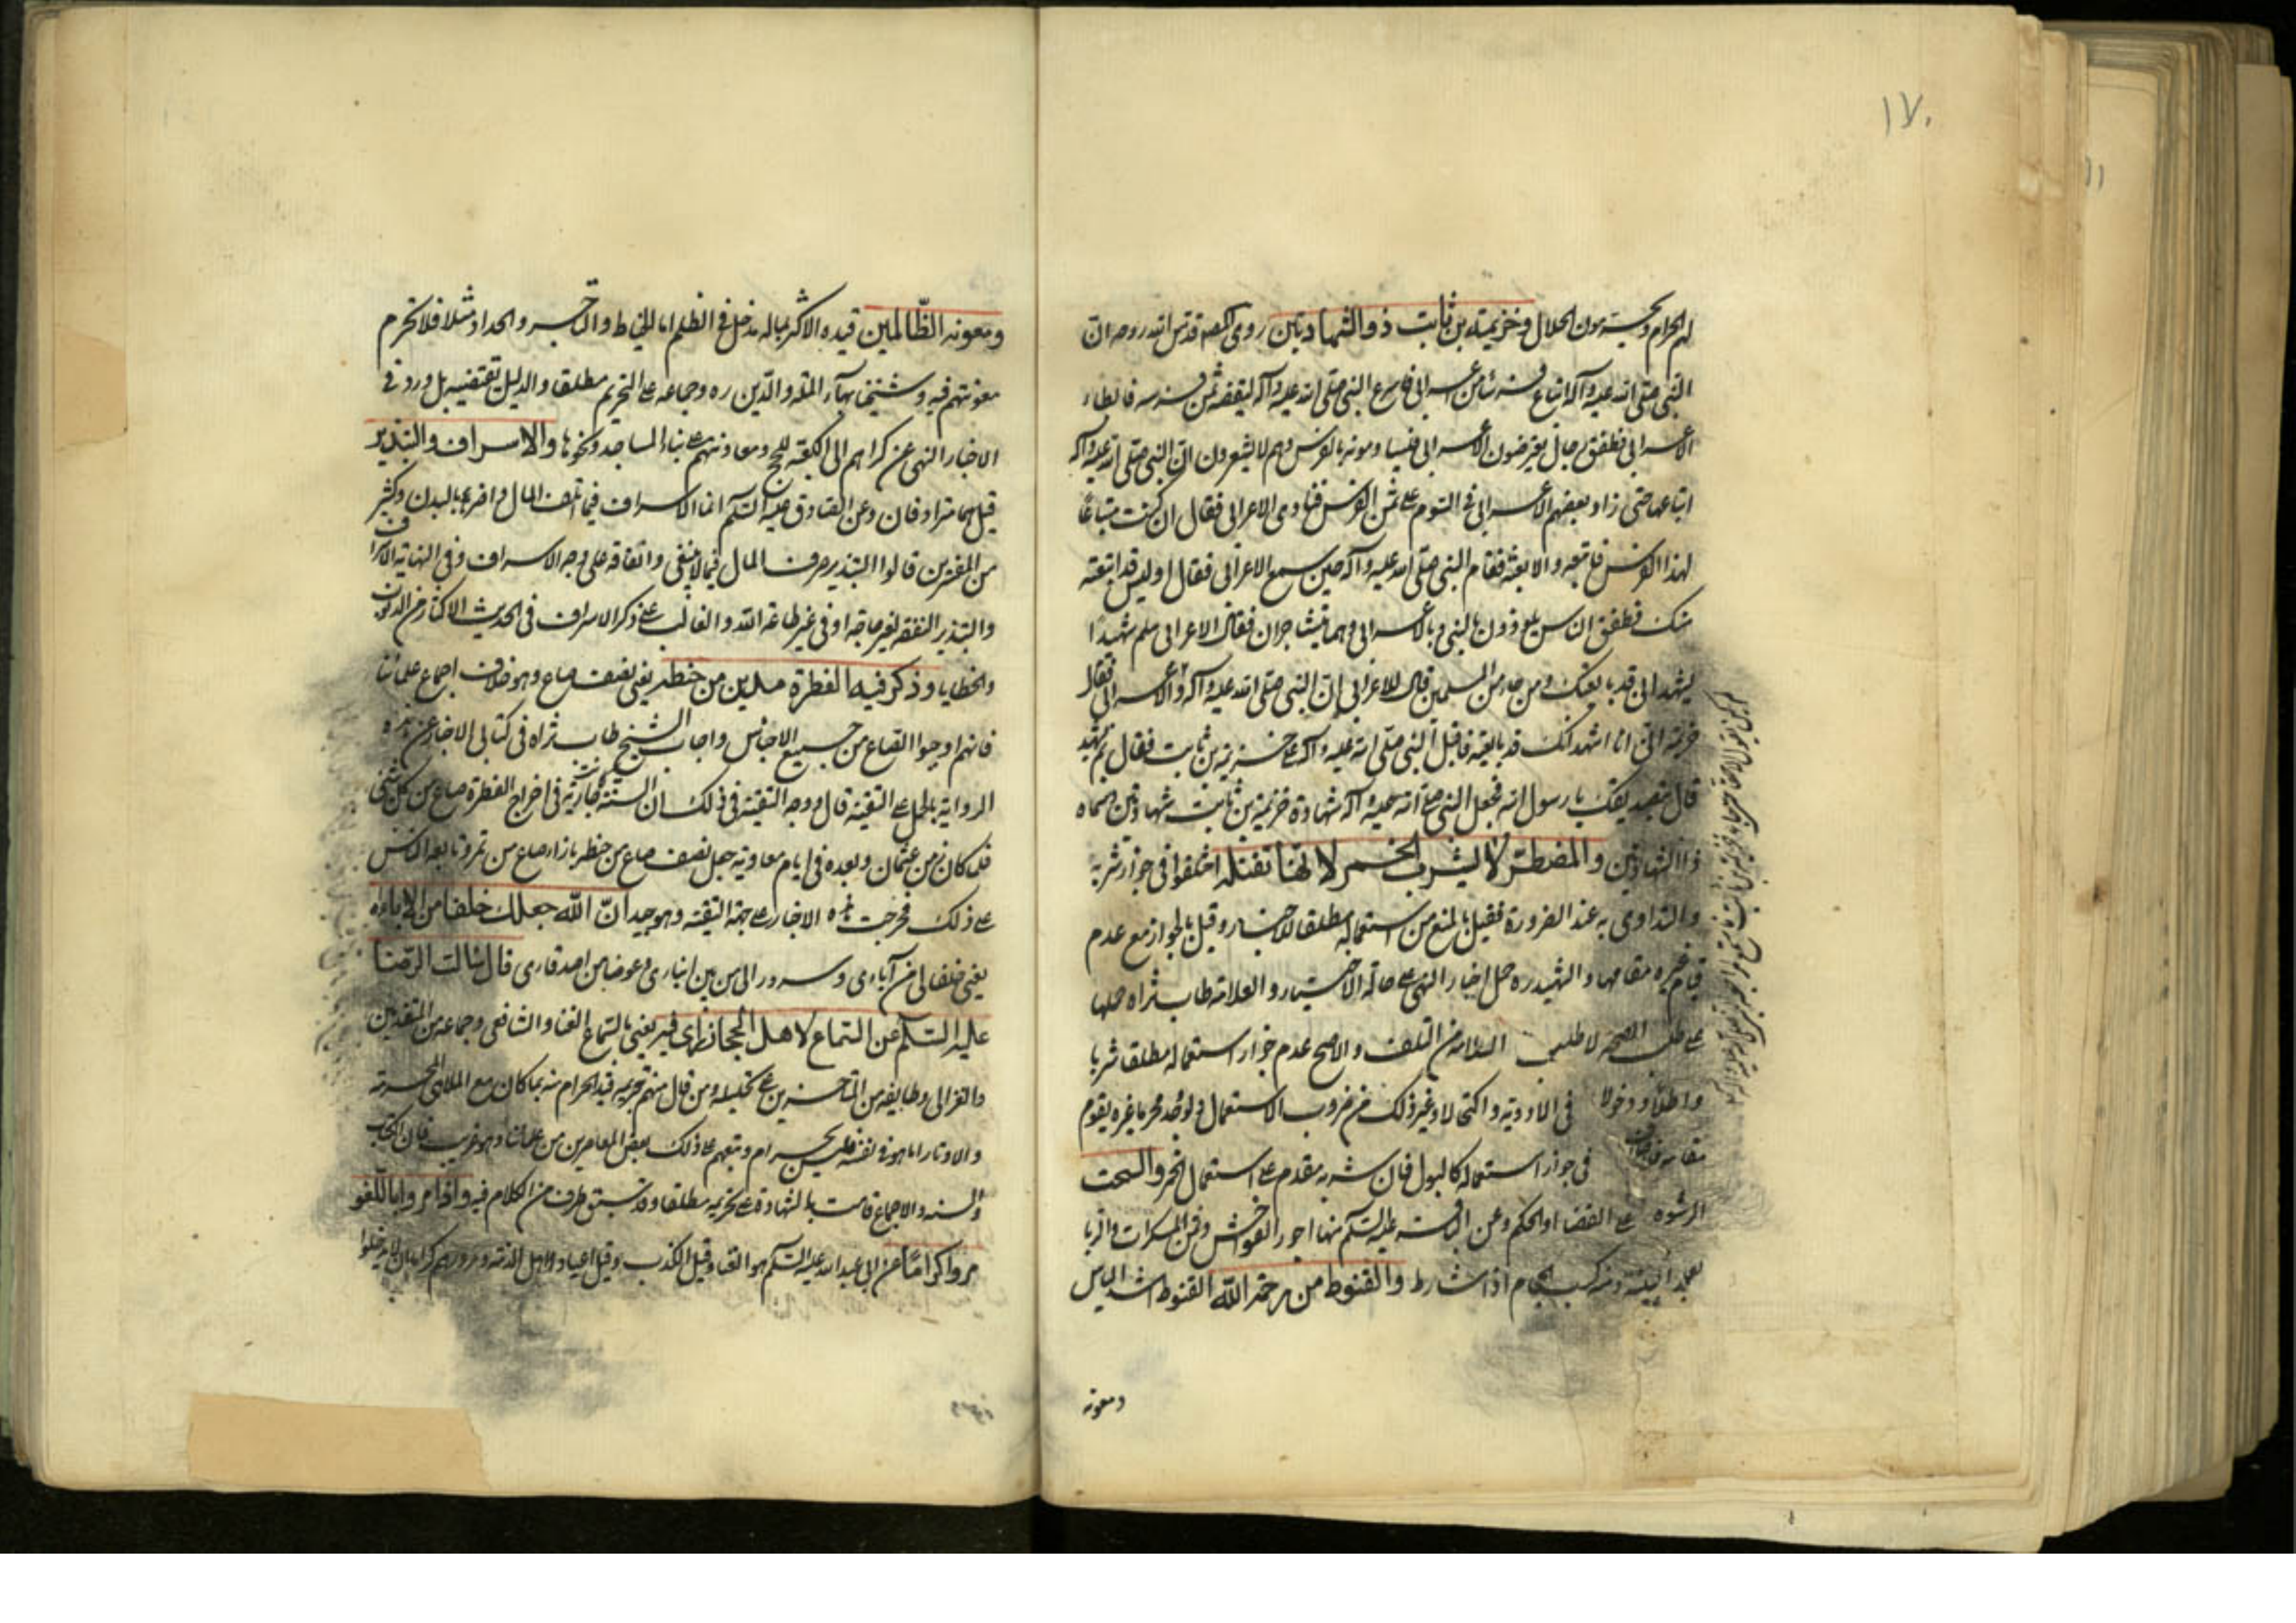 ١٧٠
لهم الحرام ويحسبونه من الحلال وخزيمة بن ثابت ذو الشهادتين روى الكلهم قدس الله روحه ان
النبي صلى الله عليه وآله ابتاع فرسا من اعرابي فاسرع النبي صلى الله عليه وآله ليقضه ثمن فرسه فابطاء
الاعرابي فطفق رجال يعترضون الاعرابي فيساومونه بالفرس وهم لا يشعرون ان النبي صلى الله عليه وآله
ابتاعها حتى زاد بعضهم الاعرابي في السوم على ثمن الفرس فنادى الاعرابي فقال ان كنت مبتاعا
لهذا الفرس فابتعه والا بعته فقام النبي صلى الله عليه وآله حين سمع الاعرابي فقال اوليس قد ابتعته
منك فطفق الناس يلوذون بالنبي وبالاعرابي وهما يتشاجران فقال الاعرابي هلم شهيدا
يشهد اني قد بايعتك ومن جاء من المسلمين قال للاعرابي ان النبي صلى الله عليه وآله والاعرابي فقال
خزيمة اني انا اشهد انك قد بايعته فاقبل النبي صلى الله عليه وآله على خزيمة بن ثابت فقال بم تشهد
قال بتصديقك يا رسول الله فجعل النبي صلى الله عليه وآله شهادة خزيمة بن ثابت شهادتين وسماه
ذا الشهادتين والمضطر لا يشرب الخمر لانها تقتله اختلفوا في جواز شربه
والتداوى به عند الضرورة فقيل بالمنع من استعماله مطلقا للاخبار وقيل بالجواز مع عدم
قيام غيره مقامها والشهيد ره حمل اخبار النهي على حالة الاختيار والعلامة طاب ثراه حملها
على طلب الصحة لا طلب السلامة من التلف والاصح عدم جواز استعماله مطلقا شربا
واطلاء ودخولا في الادوية واكتحالا وغير ذلك من ضروب الاستعمال ولو وجد محرما غيره يقوم
مقامه في جواز استعماله كالبول فان شربه مقدم على استعمال الخمر والسحت
الرشوة على القضا او الحكم وعن الباقر عليه السلم منها اجور الفواحش وثمن المسكرات والربا
بعد البينة ومنه كسب الحجام اذا شارط والقنوط من رحمة الله القنوط اشد الياس
ومعونه
ومعونه الظالمين قيده الاكثر بما له مدخل في الظلم اما الخياط والتاجر والحداد مثلا فلا تحرم
معونتهم فيه وشيخنا بهاء الملة والدين ره وجماعه على التحريم مطلقا والدليل يقتضيه بل ورد في
الاخبار النهي عن كراهم الى الكعبة للحج ومعاونتهم على بناء المساجد ونحوها والاسراف والتبذير
قيل هما مترادفان وعن الصادق عليه السلم انما الاسراف فيما اتلف المال واضر بالبدن وكثير
من المفسرين قالوا التبذير صرف المال فيما لا ينبغي وانفاقه على وجه الاسراف وفي النهاية الاسراف
والتبذير النفقة لغير حاجة او في غير طاعة الله والغالب على ذكر الاسراف في الحديث الاكثار من الذنوب
والخطايا وذكر فيه الفطرة مدين من حنطة يعني نصف صاع وهو خلاف اجماع علمائنا
فانهم اوجبوا الصاع من جميع الاجناس واجاب الشيخ طاب ثراه في كتابي الاخبار عن هذه
الرواية بالحمل على التقية قال ووجه التقية في ذلك ان السنة كانت جارية في اخراج الفطرة صاع من كل شئ
فلما كان زمن عثمان وبعده في ايام معاوية جعل نصف صاع من حنطه بازاء صاع من تمر وتابعه الناس
على ذلك فخرجت هذه الاخبار على جهة التقية وهو جيد ان الله جعلك خلفا من آبائه
يعني خلفا لي من آبائي وسرورا لي من بين انباري وعوضا من احد قاري قال سالت الرضا
عليه السلم عن السماع لاهل الحجاز راى فيه يعني بالسماع الغنا والشافعي وجماعه من المتقدمين
والغزالي وطايفه من المتاخرين على تحليله ومن قال منهم بتحريمه قيد الحرام منه بما كان مع الملاهي المحرمة
والاوتار اما هو في نفسه فليس بحرام وتبعهم على ذلك بعض المعاصرين من علمائنا وهو غريب فان الكتاب
والسنه والاجماع قامت بالشهادة على تحريمه مطلقا وقد سبق طرف من الكلام فيه واذا مروا باللغو
مروا كراما عن ابي عبد الله عليه السلم هو الغنا وقيل الكذب وقيل اعياد لاهل الذمة ومرورهم كراما بان لا يدخلوا